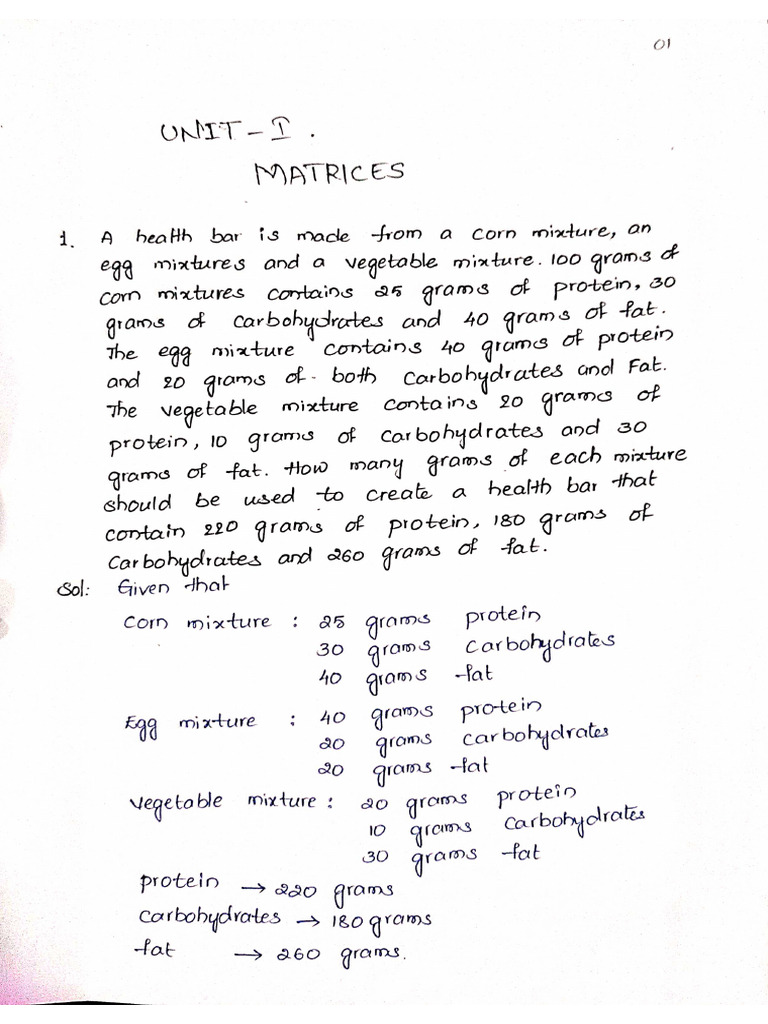 01
UNIT - I.
MATRICES
1. A health bar is made from a corn mixture, an
egg mixtures and a vegetable mixture. 100 grams of
corn mixtures contains 25 grams of protein, 30
grams of carbohydrates and 40 grams of fat.
The egg mixture contains 40 grams of protein
and 20 grams of both carbohydrates and Fat.
The vegetable mixture contains 20 grams of
protein, 10 grams of carbohydrates and 30
grams of fat. How many grams of each mixture
should be used to create a health bar that
contain 220 grams of protein, 180 grams of
carbohydrates and 260 grams of fat.
Sol: Given that
Corn mixture : 25 grams protein
30 grams carbohydrates
40 grams fat
Egg mixture : 40 grams protein
20 grams carbohydrates
20 grams fat
Vegetable mixture : 20 grams protein
10 grams carbohydrates
30 grams fat
protein → 220 grams
carbohydrates → 180 grams
fat → 260 grams.